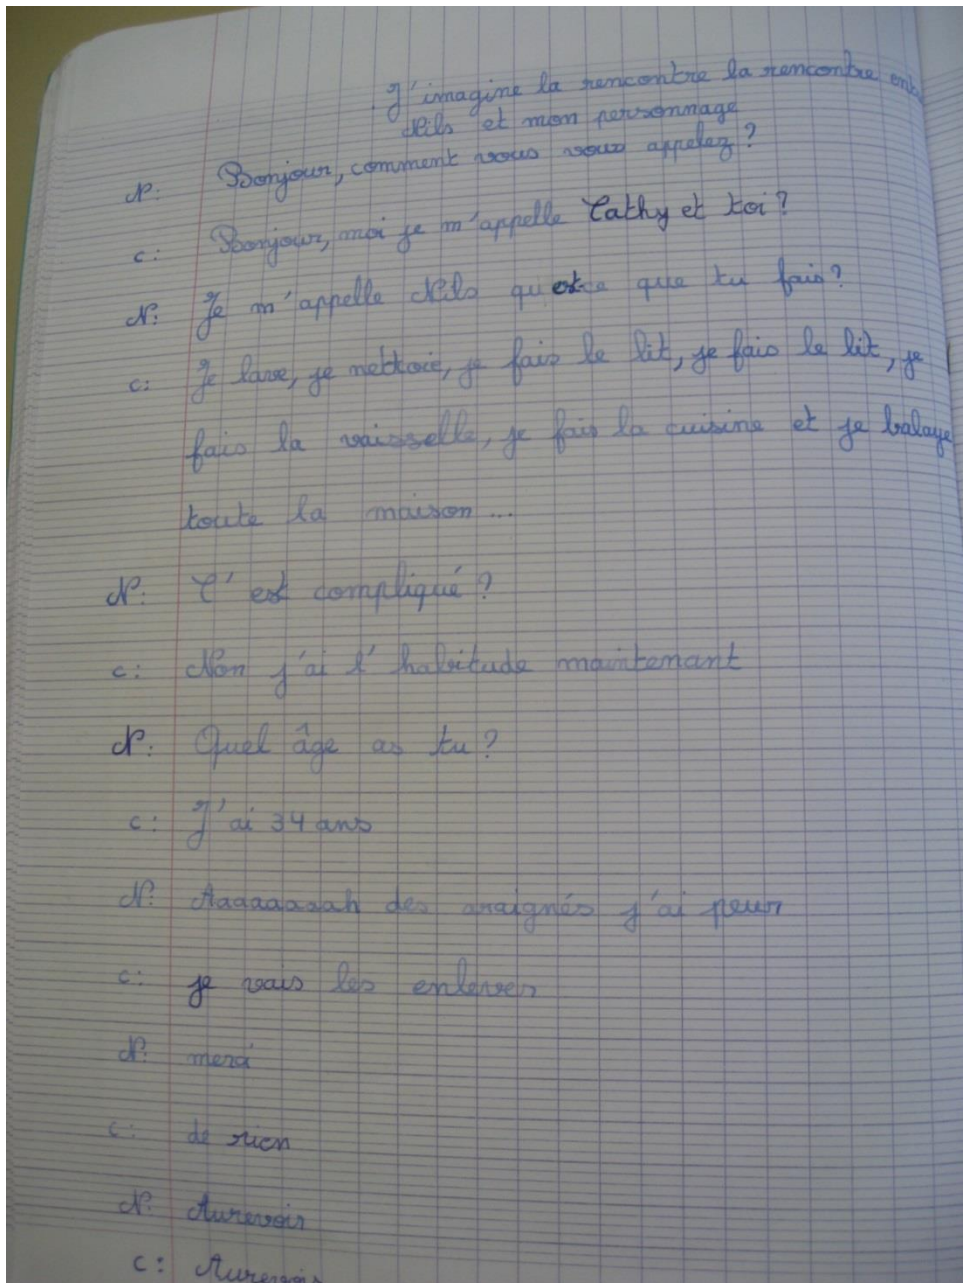 J'imagine la rencontre la rencontre entre
Nils et mon personnage
N: Bonjour, comment vous vous appelez ?
C: Bonjour, moi je m'appelle Cathy et toi ?
N: Je m'appelle Nils qu'est ce que tu fais ?
C: Je lave, je nettoie, je fais le lit, je fais le lit, je
fais la vaisselle, je fais la cuisine et je balaye
toute la maison ...
N: C'est compliqué ?
C: Non j'ai l'habitude maintenant
N: Quel âge as tu ?
C: J'ai 34 ans
N: Aaaaaaaah des araignés j'ai peur
C: je vais les enlever
N: merci
C: de rien
N: Aurevoir
C: Aurevoir